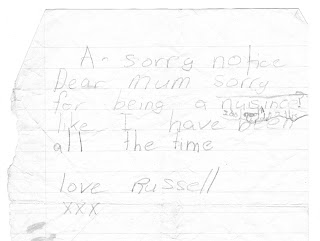 A- sorry notice
Dear Mum Sorry
for being a nuisince
like I have been
all the time
love Russell
xxx